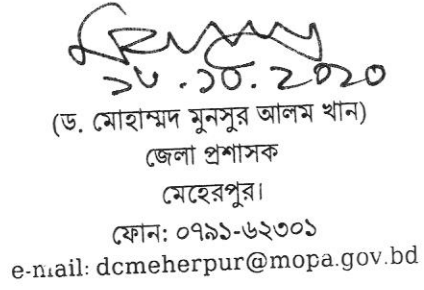 ২৮.১০.2020
(ড. মোহাম্মদ মুনসুর আলম খান)
জেলা প্রশাসক
মেহেরপুর।
ফোন: ০৭৯১-৬২৩০১
e-mail: dcmeherpur@mopa.gov.bd